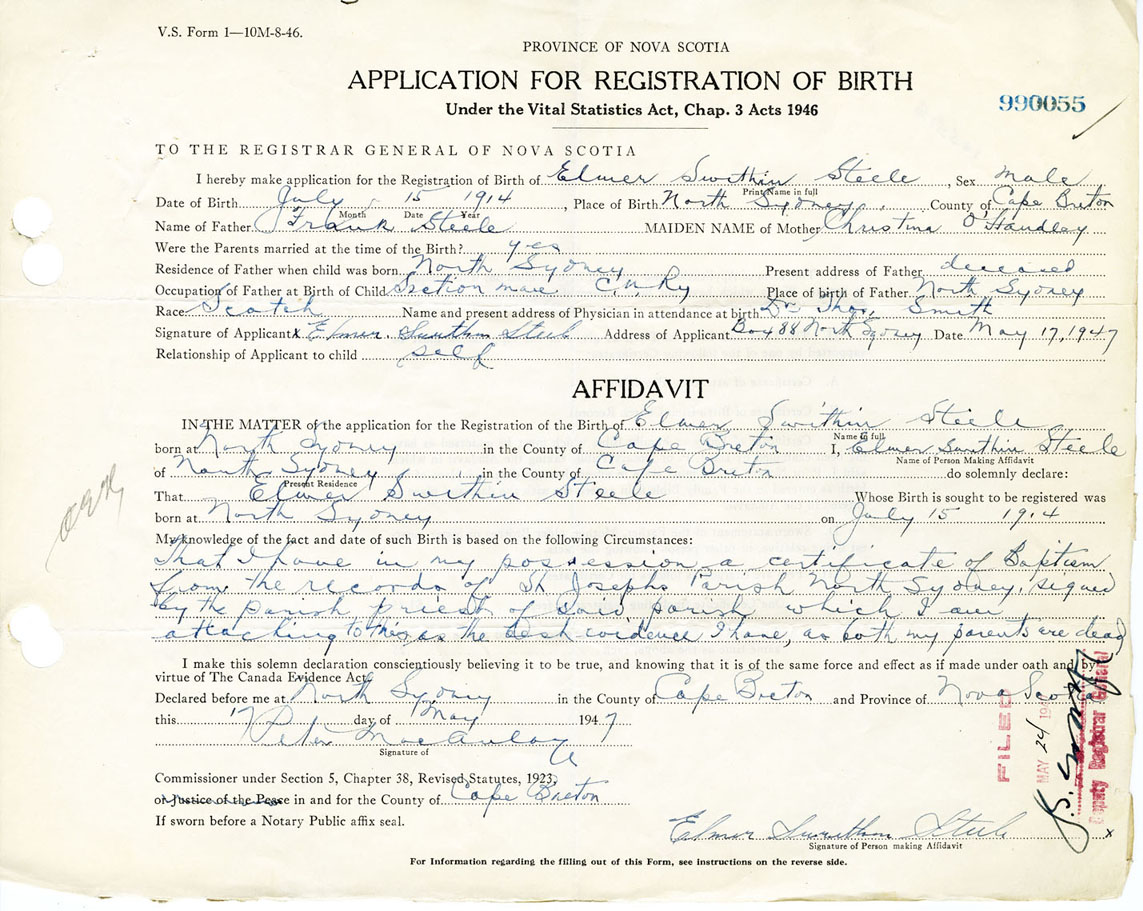 V.S. Form 1—10M-8-46.
PROVINCE OF NOVA SCOTIA
APPLICATION FOR REGISTRATION OF BIRTH
990055
Under the Vital Statistics Act, Chap. 3 Acts 1946
TO THE REGISTRAR GENERAL OF NOVA SCOTIA
I hereby make application for the Registration of Birth of Elmer Swithin Steele, Sex Male
Print Name in full
Date of Birth July 15 1914, Place of Birth North Sydney, County of Cape Breton
Month Date Year
Name of Father Frank Steele MAIDEN NAME of Mother Christina O'Handley
Were the Parents married at the time of the Birth? yes
Residence of Father when child was born North Sydney Present address of Father deceased
Occupation of Father at Birth of Child Section man C.N.Ry Place of birth of Father North Sydney
Race Scotch Name and present address of Physician in attendance at birth Dr. Thos. Smith
Signature of Applicant x Elmer Swithin Steele Address of Applicant Box 88 North Sydney Date May 17, 1947
Relationship of Applicant to child self
AFFIDAVIT
IN THE MATTER of the application for the Registration of the Birth of Elmer Swithin Steele
Name in full
born at North Sydney in the County of Cape Breton I, Elmer Swithin Steele
Name of Person Making Affidavit
of North Sydney in the County of Cape Breton do solemnly declare:
Present Residence
That Elmer Swithin Steele Whose Birth is sought to be registered was
born at North Sydney on July 15 1914
My knowledge of the fact and date of such Birth is based on the following Circumstances:
That I have in my possession a certificate of Baptism
from the records of St Josephs Parish North Sydney, signed
by the parish priest of said parish which I am
attaching to this, as the best evidence I have, as both my parents are dead
I make this solemn declaration conscientiously believing it to be true, and knowing that it is of the same force and effect as if made under oath and by
virtue of The Canada Evidence Act
Declared before me at North Sydney in the County of Cape Breton and Province of Nova Scotia
this 17 day of May 1947
Peter MacAulay
Signature of
Commissioner under Section 5, Chapter 38, Revised Statutes, 1923,
or Justice of the Peace in and for the County of Cape Breton
If sworn before a Notary Public affix seal.
Elmer Swithin Steele x
Signature of Person making Affidavit
For Information regarding the filling out of this Form, see instructions on the reverse side.
FILED
MAY 24 194
Deputy Registrar General